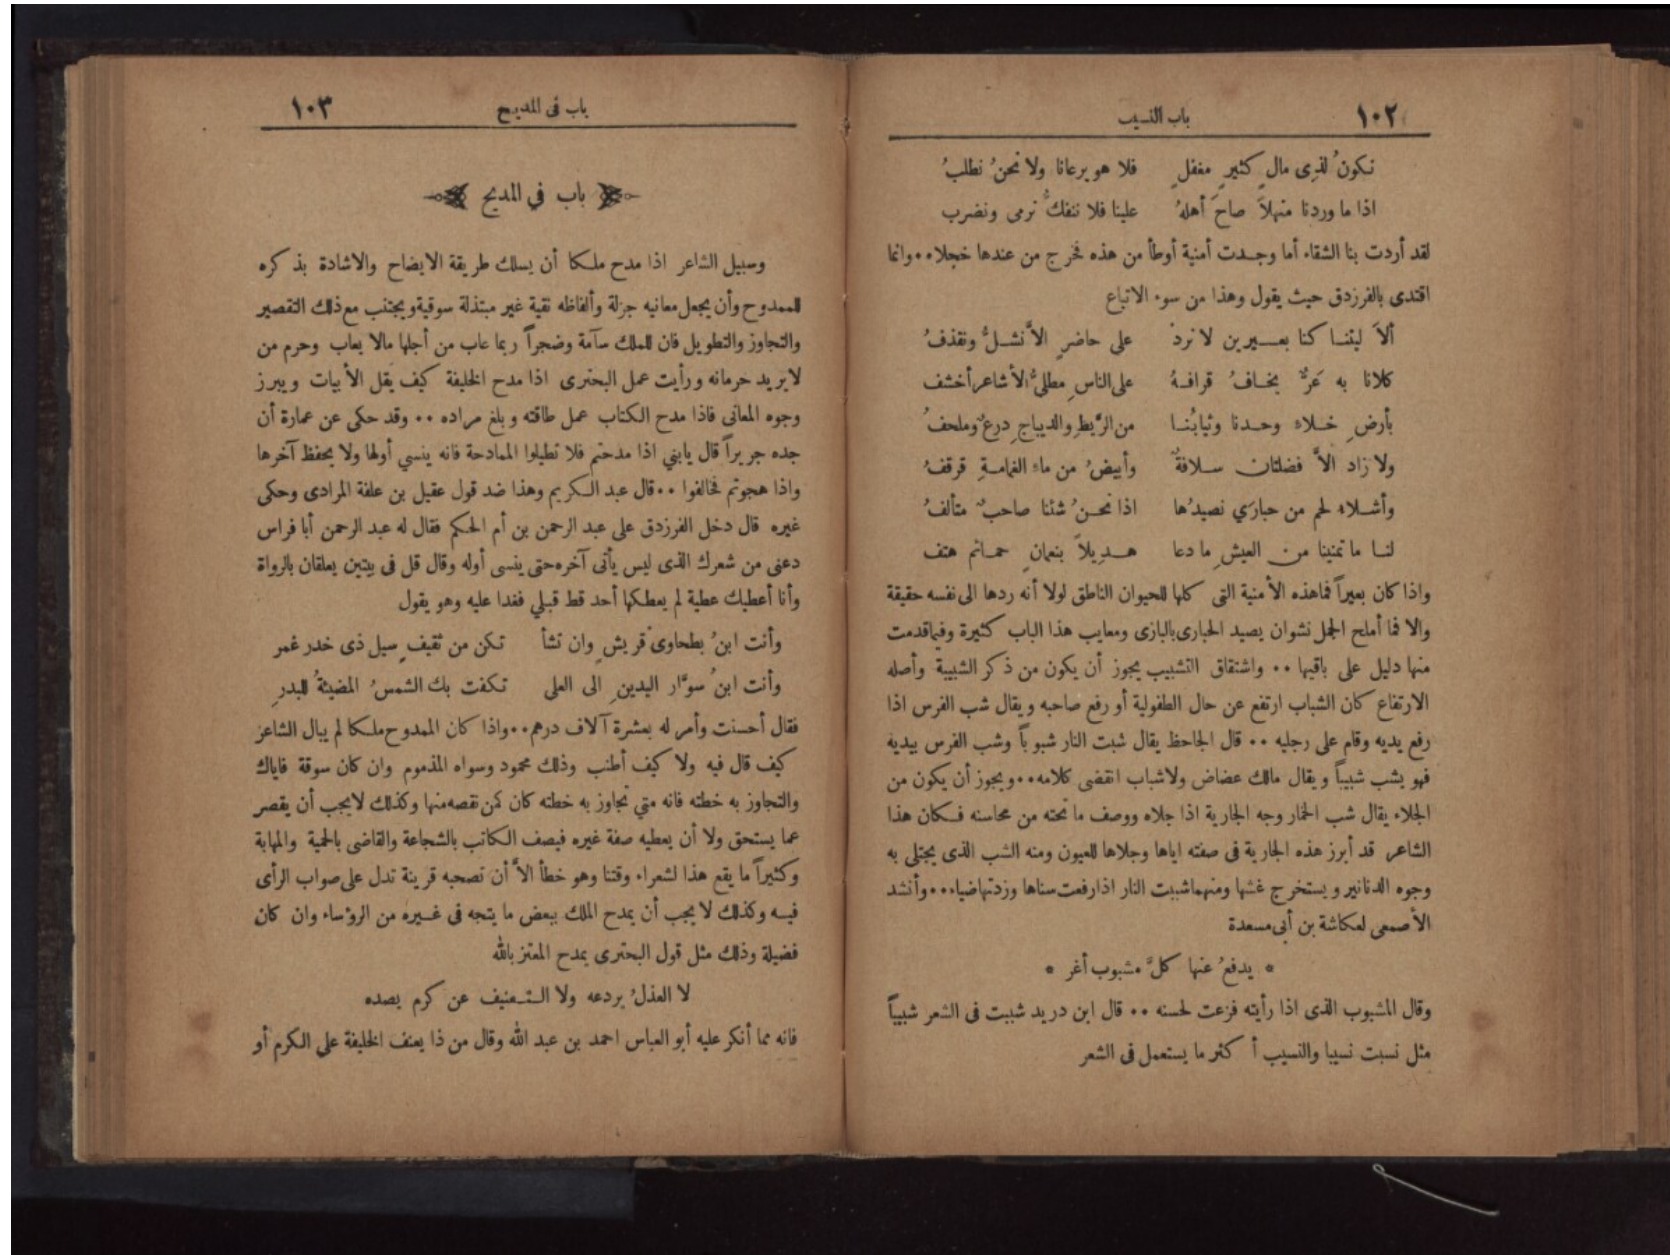 ١٠٢
باب النسيب
نكونُ لذى مالٍ كثيرٍ مغفلٍ فلا هو يرعانا ولا نحنُ نطلبُ
اذا ما وردنا منهلاً صاحَ أهلهُ علينا فلا ننفكُّ نرمى ونضرب
لقد أردت بنا الشقاء أما وجدت أمنية أوطأ من هذه فخرج من عندها خجلا٠٠وانما
اقتدى بالفرزدق حيث يقول وهذا من سوء الاتباع
ألاَ ليتنا كنا بعيرين لا نردْ على حاضرٍ الاَّ نشلُّ ونقذفُ
كلانا به عَرٌّ يخافُ قرافهُ على الناسِ مطلىُّ الأشاعر أخشف
بأرضٍ خلاءٍ وحدنا وثيابُنا من الرَّيطِ والديباجِ درعٌ وملحفُ
ولا زاد الاَّ فضلتان سلافةٌ وأبيضُ من ماء الغمامةِ قرقفُ
وأشلاء لحم من حبارَي نصيدُها اذا نحنُ شئنا صاحبٌ متألفُ
لنا ما تمنينا من العيشِ ما دعا هديلاً بنعمانٍ حمائم هتف
واذا كان بعيراً فماهذه الأمنية التى كلها للحيوان الناطق لولا أنه ردها الى نفسه حقيقة
والا فما أملح الجمل نشوان يصيد الحبارى بالبازى ومعايب هذا الباب كثيرة وفيماقدمت
منها دليل على باقيها ٠٠ واشتقاق التشبيب يجوز أن يكون من ذكر الشبيبة وأصله
الارتفاع كان الشباب ارتفع عن حال الطفولية أو رفع صاحبه ويقال شب الفرس اذا
رفع يديه وقام على رجليه ٠٠ قال الجاحظ يقال شبت النار شبوباً وشب الفرس بيديه
فهو يشب شبيباً ويقال مالك عضاض ولاشباب انقضى كلامه٠٠ويجوز أن يكون من
الجلاء يقال شب الخمار وجه الجارية اذا جلاه ووصف ما تحته من محاسنه فكان هذا
الشاعر قد أبرز هذه الجارية فى صفته اياها وجلاها للعيون ومنه الشب الذى يجتلى به
وجوه الدنانير ويستخرج غشها ومنهماشببت النار اذا رفعت سناها وزدتهاضياء٠٠وأنشد
الأصمعى لعكاشة بن أبى مسعدة
* يدفعُ عنها كلَّ مشبوب أغر *
وقال المشبوب الذى اذا رأيته فزعت لحسنه ٠٠ قال ابن دريد شببت فى الشعر شبيباً
مثل نسبت نسيبا والنسيب أكثر ما يستعمل فى الشعر
باب فى المديح
١٠٣
باب في المديح
وسبيل الشاعر اذا مدح ملكا أن يسلك طريقة الايضاح والاشادة بذكره
للممدوح وأن يجعل معانيه جزلة وألفاظه نقية غير مبتذلة سوقية ويجتنب مع ذلك التقصير
والتجاوز والتطويل فان للملك سآمة وضجراً ربما عاب من أجلها مالا يعاب وحرم من
لايريد حرمانه ورأيت عمل البحترى اذا مدح الخليفة كيف يقل الأبيات ويبرز
وجوه المعانى فاذا مدح الكتاب عمل طاقته وبلغ مراده ٠٠ وقد حكى عن عمارة أن
جده جريراً قال يابني اذا مدحتم فلا تطيلوا الممادحة فانه ينسي أولها ولا يحفظ آخرها
واذا هجوتم فخالفوا ٠٠قال عبد الكريم وهذا ضد قول عقيل بن علفة المرادى وحكى
غيره قال دخل الفرزدق على عبد الرحمن بن أم الحكم فقال له عبد الرحمن أبا فراس
دعنى من شعرك الذى ليس يأتى آخره حتى ينسى أوله وقال قل فى بيتين يعلقان بالرواة
وأنا أعطيك عطية لم يعطكها أحد قط قبلي فغدا عليه وهو يقول
وأنت ابنُ بطحاوى قريشٍ وان تشأ تكن من ثقيفٍ سيل ذى خدر غمر
وأنت ابنُ سوَّار اليدينِ الى العلى تكفت بك الشمسُ المضيئةُ للبدرِ
فقال أحسنت وأمر له بعشرة آلاف درهم٠٠واذا كان الممدوح ملكا لم يبال الشاعر
كيف قال فيه ولا كيف أطنب وذلك محمود وسواه المذموم وان كان سوقة فاياك
والتجاوز به خطته فانه متي تجاوز به خطته كان كمن نقصه منها وكذلك لايجب أن يقصر
عما يستحق ولا أن يعطيه صفة غيره فيصف الكاتب بالشجاعة والقاضى بالحمية والمهابة
وكثيراً ما يقع هذا لشعراء وقتنا وهو خطأ الاَّ أن تصحبه قرينة تدل على صواب الرأى
فيه وكذلك لا يجب أن يمدح الملك ببعض ما يتجه فى غيره من الرؤساء وان كان
فضيلة وذلك مثل قول البحترى يمدح المعتز بالله
لا العذلُ يردعه ولا التعنيف عن كرم يصده
فانه مما أنكر عليه أبو العباس احمد بن عبد الله وقال من ذا يعنف الخليفة على الكرم أو